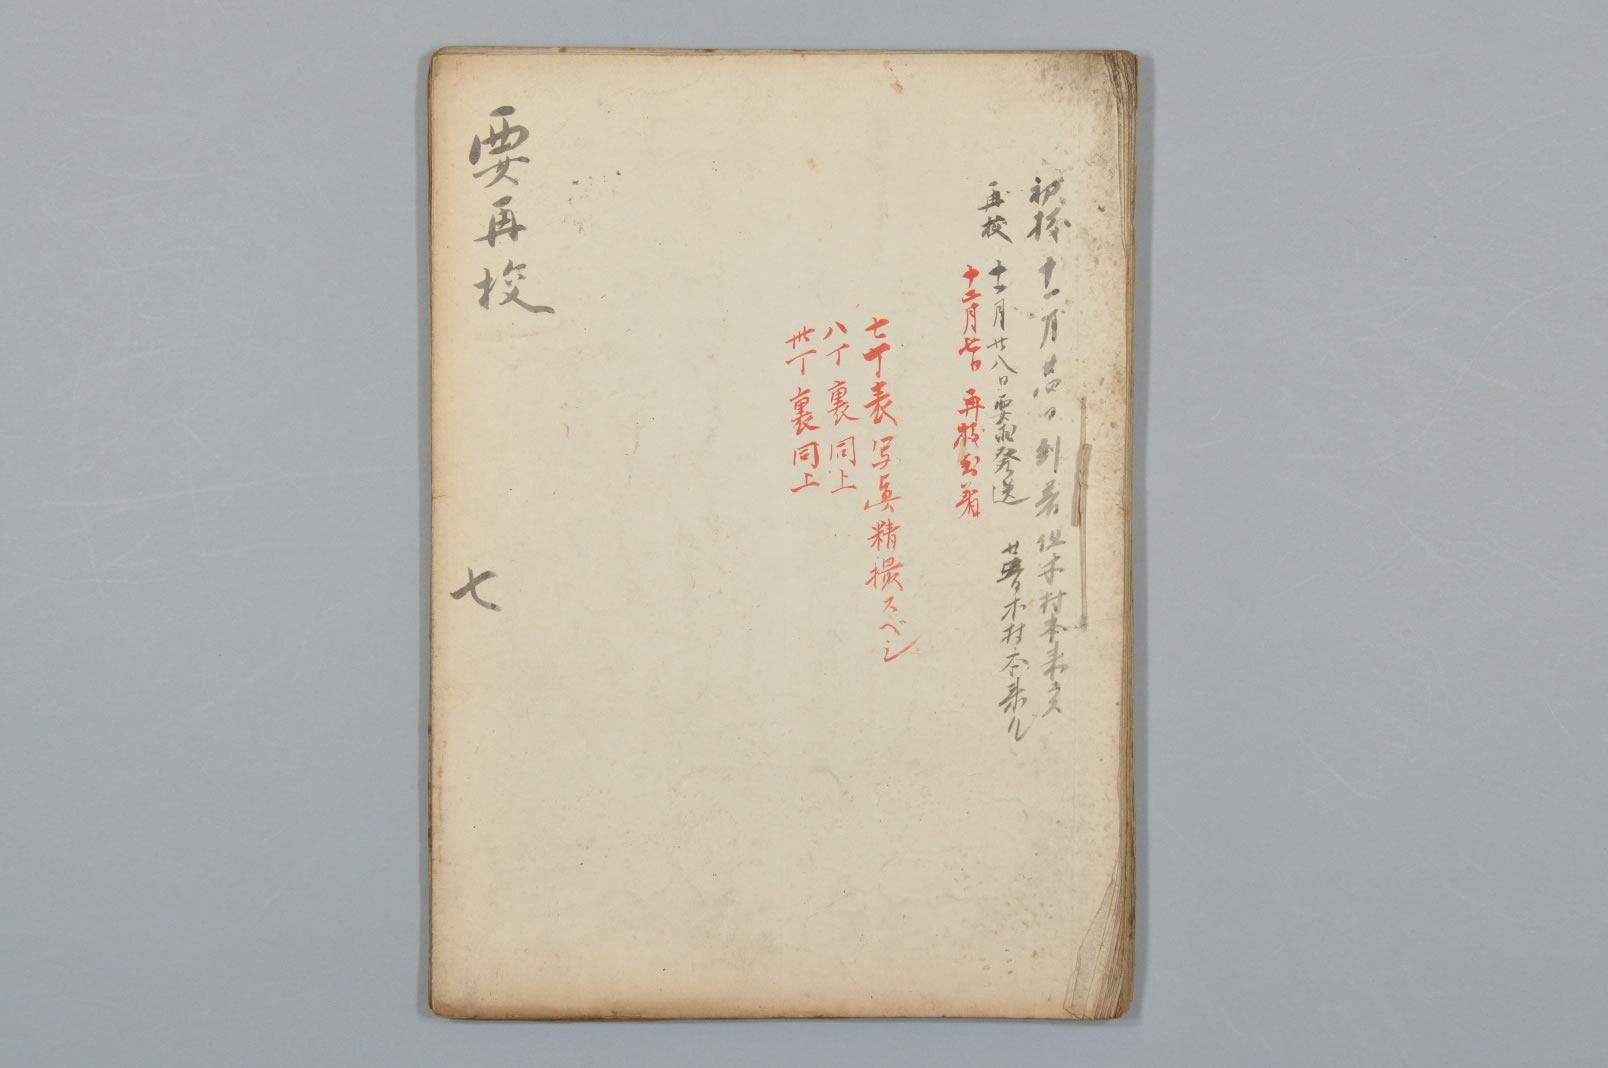 初校 十一月廿四日到着 木村本来
再校 十一月廿八日要再発送 木村本来ル
十二月七日 再校出着
七丁表写眞精撮スベシ
八丁裏同上
卅丁裏同上
要再校
七